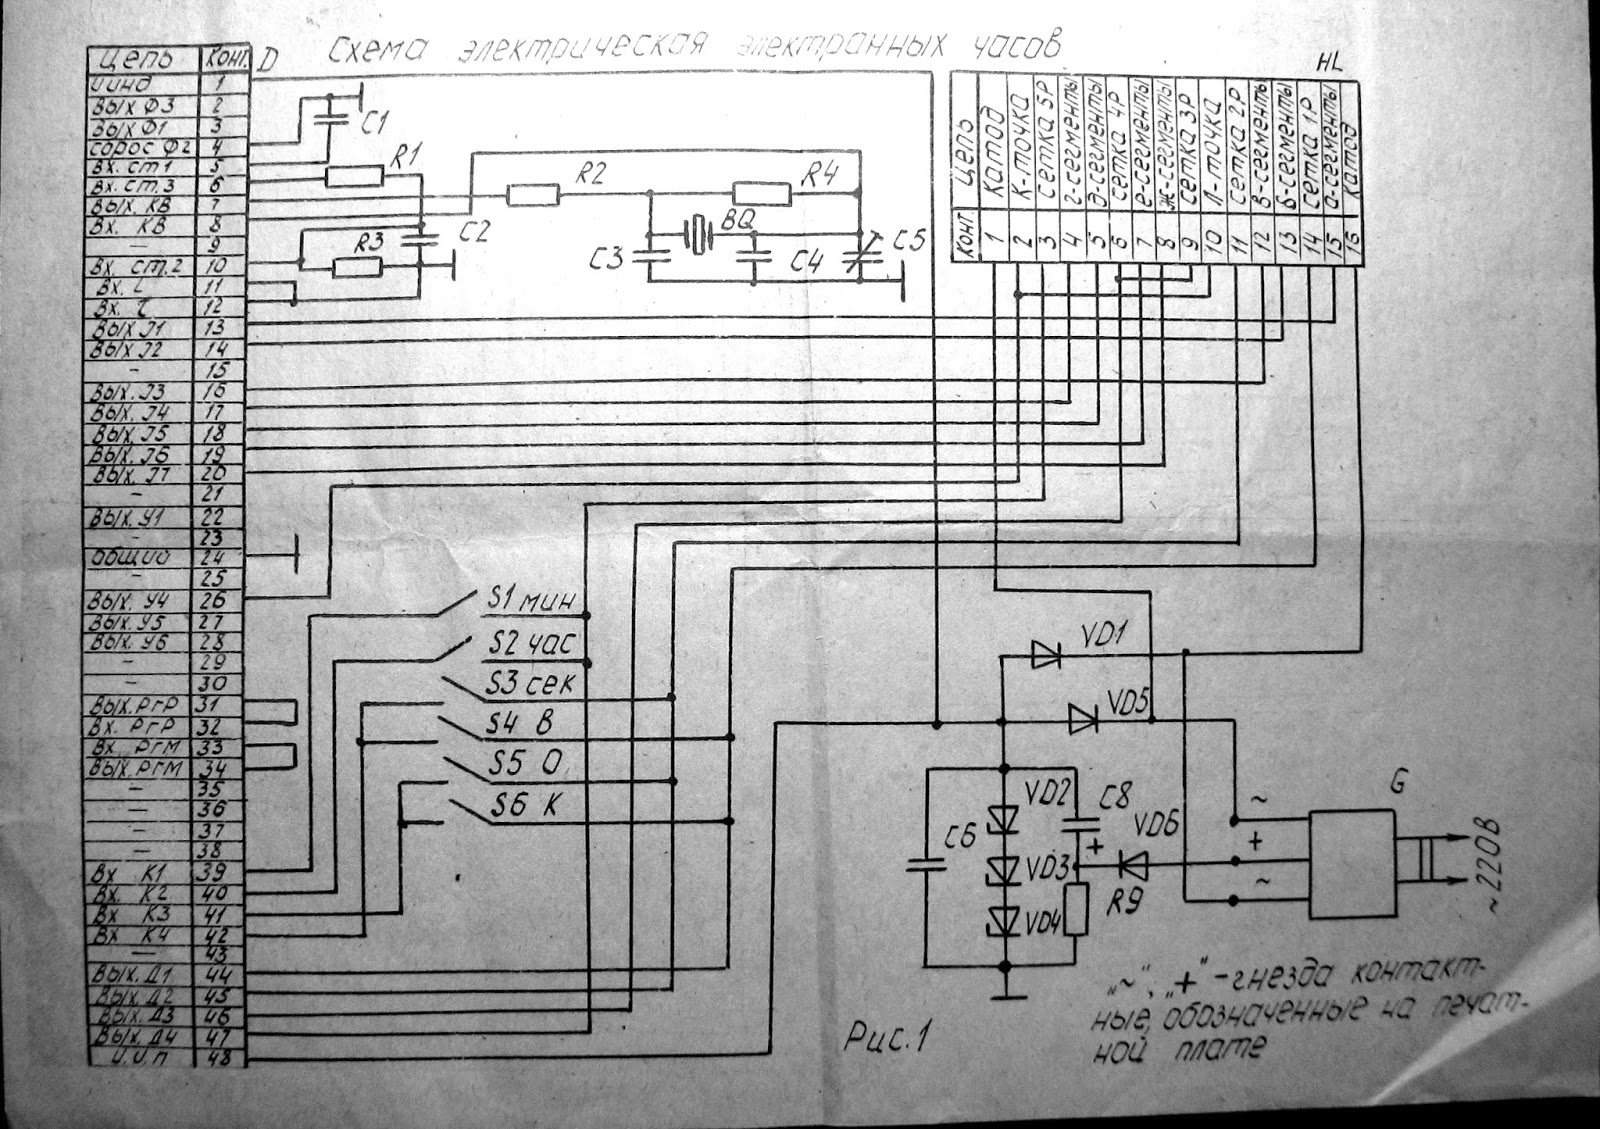 Схема электрическая электранных часов
Цепь Конт. D
Uинд 1
Вых Ф3 2
Вых Ф1 3
сброс Ф2 4
Вх. ст1 5
Вх. ст.3 6
Вых. КВ 7
Вх. КВ 8
— 9
Вх. ст.2 10
Вх. L 11
Вх. T 12
Вых J1 13
Вых J2 14
- 15
Вых. J3 16
Вых. J4 17
Вых J5 18
Вых. J6 19
Вых. J7 20
- 21
Вых. У1 22
- 23
Общий 24
- 25
Вых. У4 26
Вых. У5 27
Вых. У6 28
- 29
- 30
Вых. РгР 31
Вх. РгР 32
Вх РгМ 33
Вых. РгМ 34
- 35
- 36
- 37
- 38
Вх К1 39
Вх. К2 40
Вх К3 41
Вх К4 42
— 43
Вых. Д1 44
Вых. Д2 45
Вых. Д3 46
Вых. Д4 47
U.U.п 48
C1
R1
R2
R4
R3
C2
C3
BQ
C4
C5
HL
Цепь
Катод
К-точка
сетка 5Р
г-сегменты
д-сегменты
сетка 4Р
е-сегменты
ж-сегменты
сетка 3Р
Л-точка
сетка 2Р
в-сегменты
б-сегменты
сетка 1Р
а-сегменты
Катод
Конт
1 2 3 4 5 6 7 8 9 10 11 12 13 14 15 16
S1 мин
S2 час
S3 сек
S4 В
S5 О
S6 К
VD1
VD5
VD2
C8
C6
VD3
VD6
VD4
R9
+
G
~
+
~
~220В
„~", „+" -гнезда контакт-
ные, обозначенные на печат-
ной плате
Рис.1